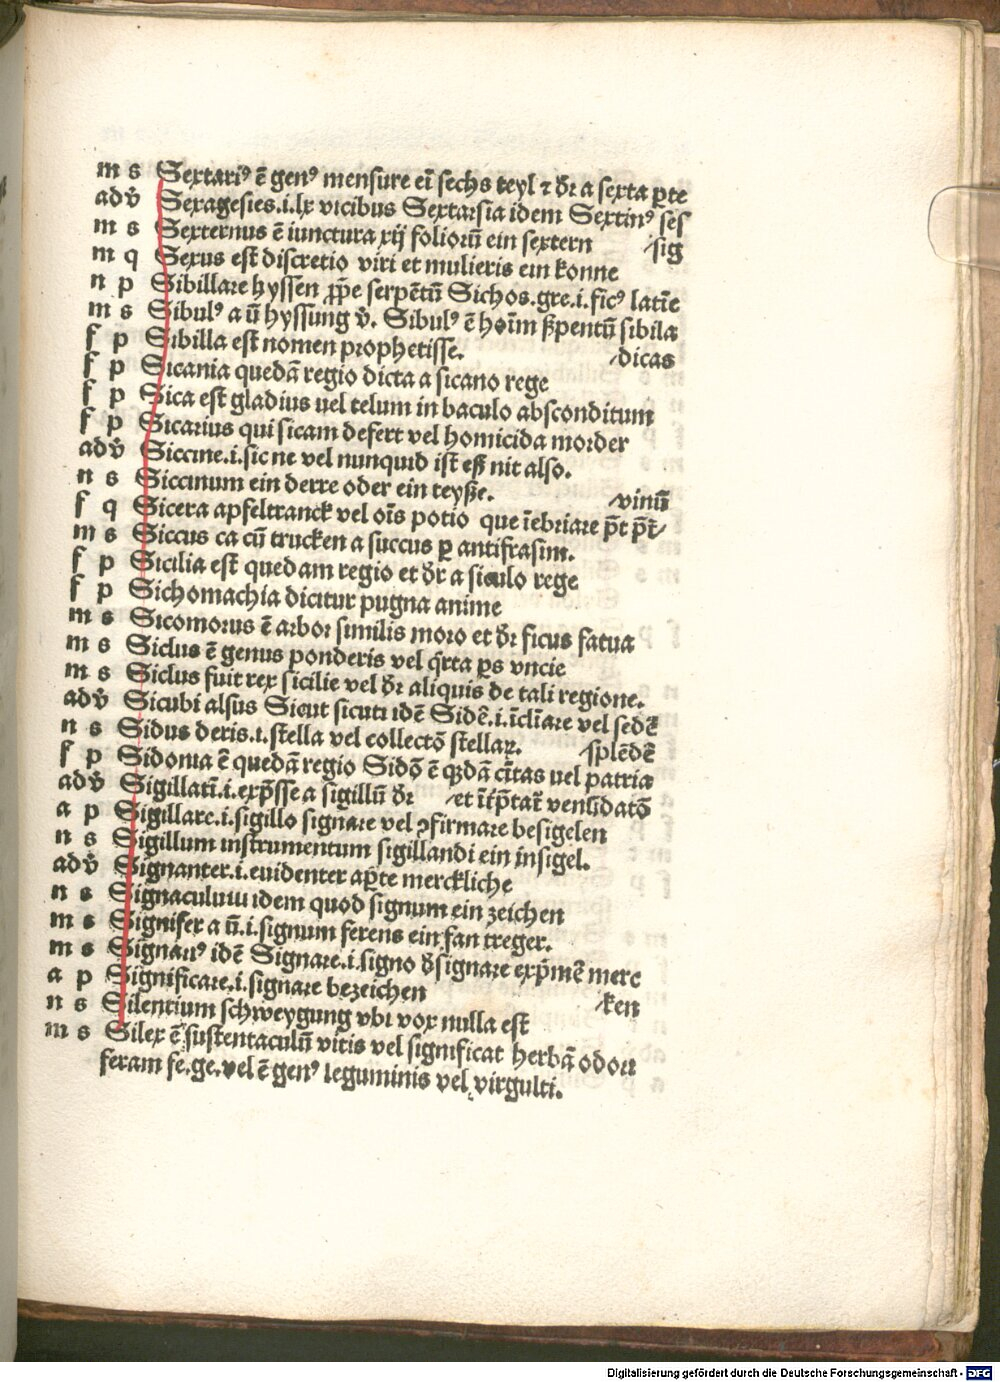 m s Sextariꝰ ē genꝰ mensure eī sechs teyl ⁊ dr̄ a sexta ꝑte
adv̄ Sexagesies.i.lx vicibus Sextarsia idem Sextinꝰ ses
m s Sexternus ē iunctura xij foliorū ein sextern ⸝sig
m q Sexus est discretio viri et mulieris ein konne
n p Sibillare hyssen ꝓp̄e serpētū Sichos.gre.i.ficꝰ latīe
m s Sibulꝰ a ū hyssung v̄. Sibulꝰ ē hoīm s̄pentū sibila
f p Sibilla est nomen prophetisse. ⸝dicas
f p Sicania quedā regio dicta a sicano rege
f p Sica est gladius uel telum in baculo absconditum
f p Sicarius qui sicam defert vel homicida morder
adv̄ Siccine.i.sic ne vel nunquid ist eß nit also.
n s Siccinum ein derre oder ein teyße. ⸝vinū
f q Sicera apfeltranck vel oīs potio que īebriare p̄t p̄t̄⸝
m s Siccus ca cū trucken a succus ꝑ antifrasim.
f p Sicilia est quedam regio et dr̄ a siculo rege
f p Sichomachia dicitur pugna anime
m s Sicomorus ē arbor similis moro et dr̄ ficus fatua
m s Siclus ē genus ponderis vel q̄rta ꝑs vncie
m s Siclus fuit rex sicilie vel dr̄ aliquis de tali regione.
adv̄ Sicubi alsus Sicut sicuti idē Sidē.i.īclīare vel sedē
n s Sidus deris.i.stella vel collectō stellaꝝ. ⸝splēdē
f p Sidonia ē quedā regio Sidō ē q̄dā cītas uel patria
adv̄ Sigillatī.i.exp̄sse a sigillū dr̄ ⸝et īt̄p̄tat̄ venādatō
a p Sigillare.i.sigillo signare vel ꝯfirmare besigelen
n s Sigillum instrumentum sigillandi ein insigel.
adv̄ Signanter.i.euidenter aꝑte merckliche
n s Signaculum idem quod signum ein zeichen
m s Signifer a ū.i.signum ferens ein fan treger.
m s Signarꝰ idē Signare.i.signo d̄signare exp̄mē merc
a p Significare.i.signare bezeichen ⸝ken
n s Silentium schweygung vbi vox nulla est
m s Silex ē sustentaculū vitis vel significat herbā odori
feram fe.ge.vel ē genꝰ leguminis vel virgulti.
Digitalisierung gefördert durch die Deutsche Forschungsgemeinschaft - DFG